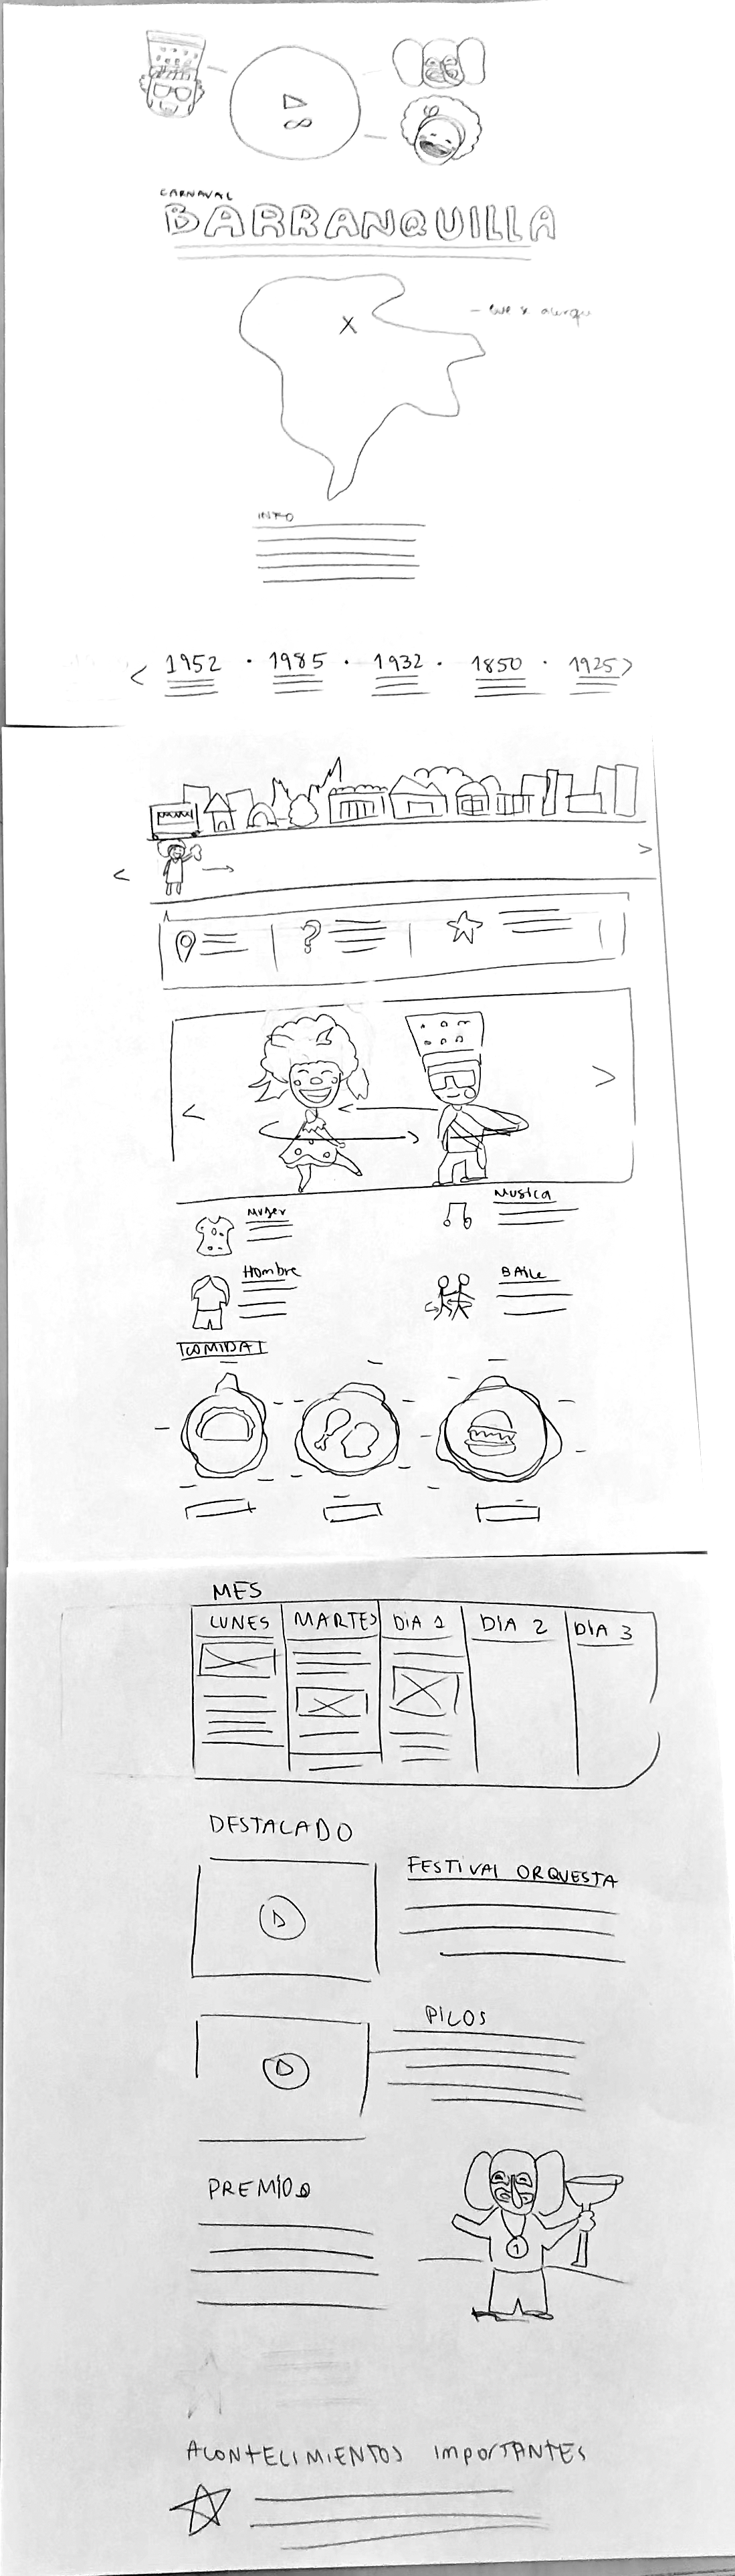 CARNAVAL
BARRANQUILLA
X
INFO
< 1952 · 1985 · 1932 · 1850 · 1925 >
< >
?
< >
Mujer
Musica
Hombre
BAile
COMIDA
MES
LUNES MARTES DIA 1 DIA 2 DIA 3
DESTACADO
FESTIVAl ORQUESTA
PILOS
PREMIOS
1
ACONTECIMIENTOS ImpORTANTES